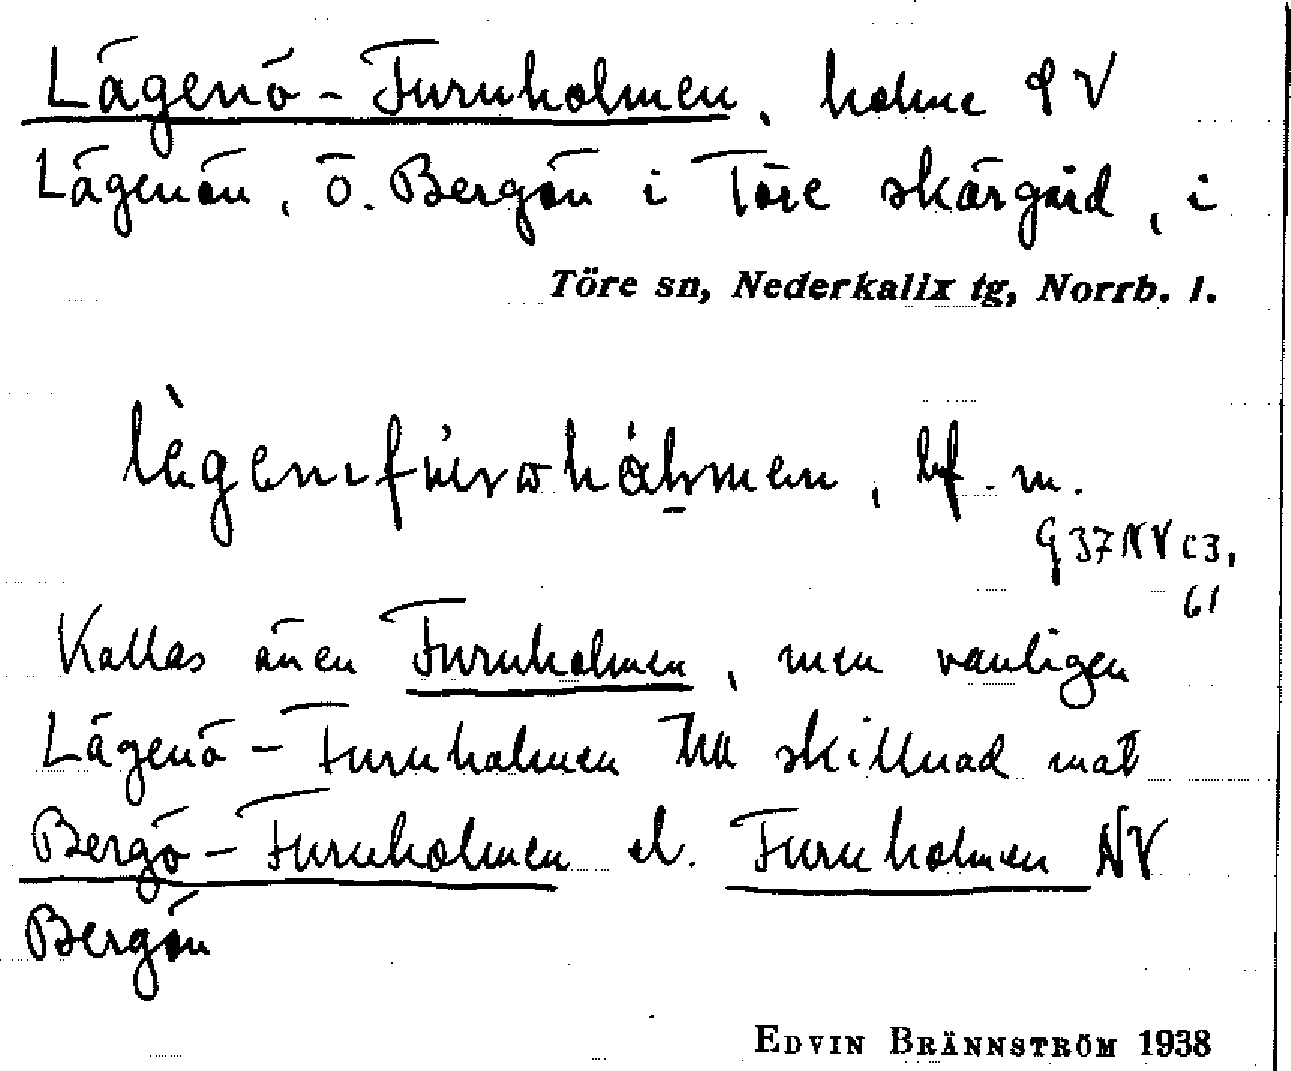 Lägenö-Furuholmen, holme SV
Lägenön, ö. Bergön i Töre skärgård, i
Töre sn, Nederkalix tg, Norrb. l.
bf. m.
G 37 NV c3,
61
Kallas även Furuholmen, men vanligen
Lägenö-Furuholmen till skillnad mot
Bergö-Furuholmen el. Furuholmen NV
Bergön
EDVIN BRÄNNSTRÖM 1938